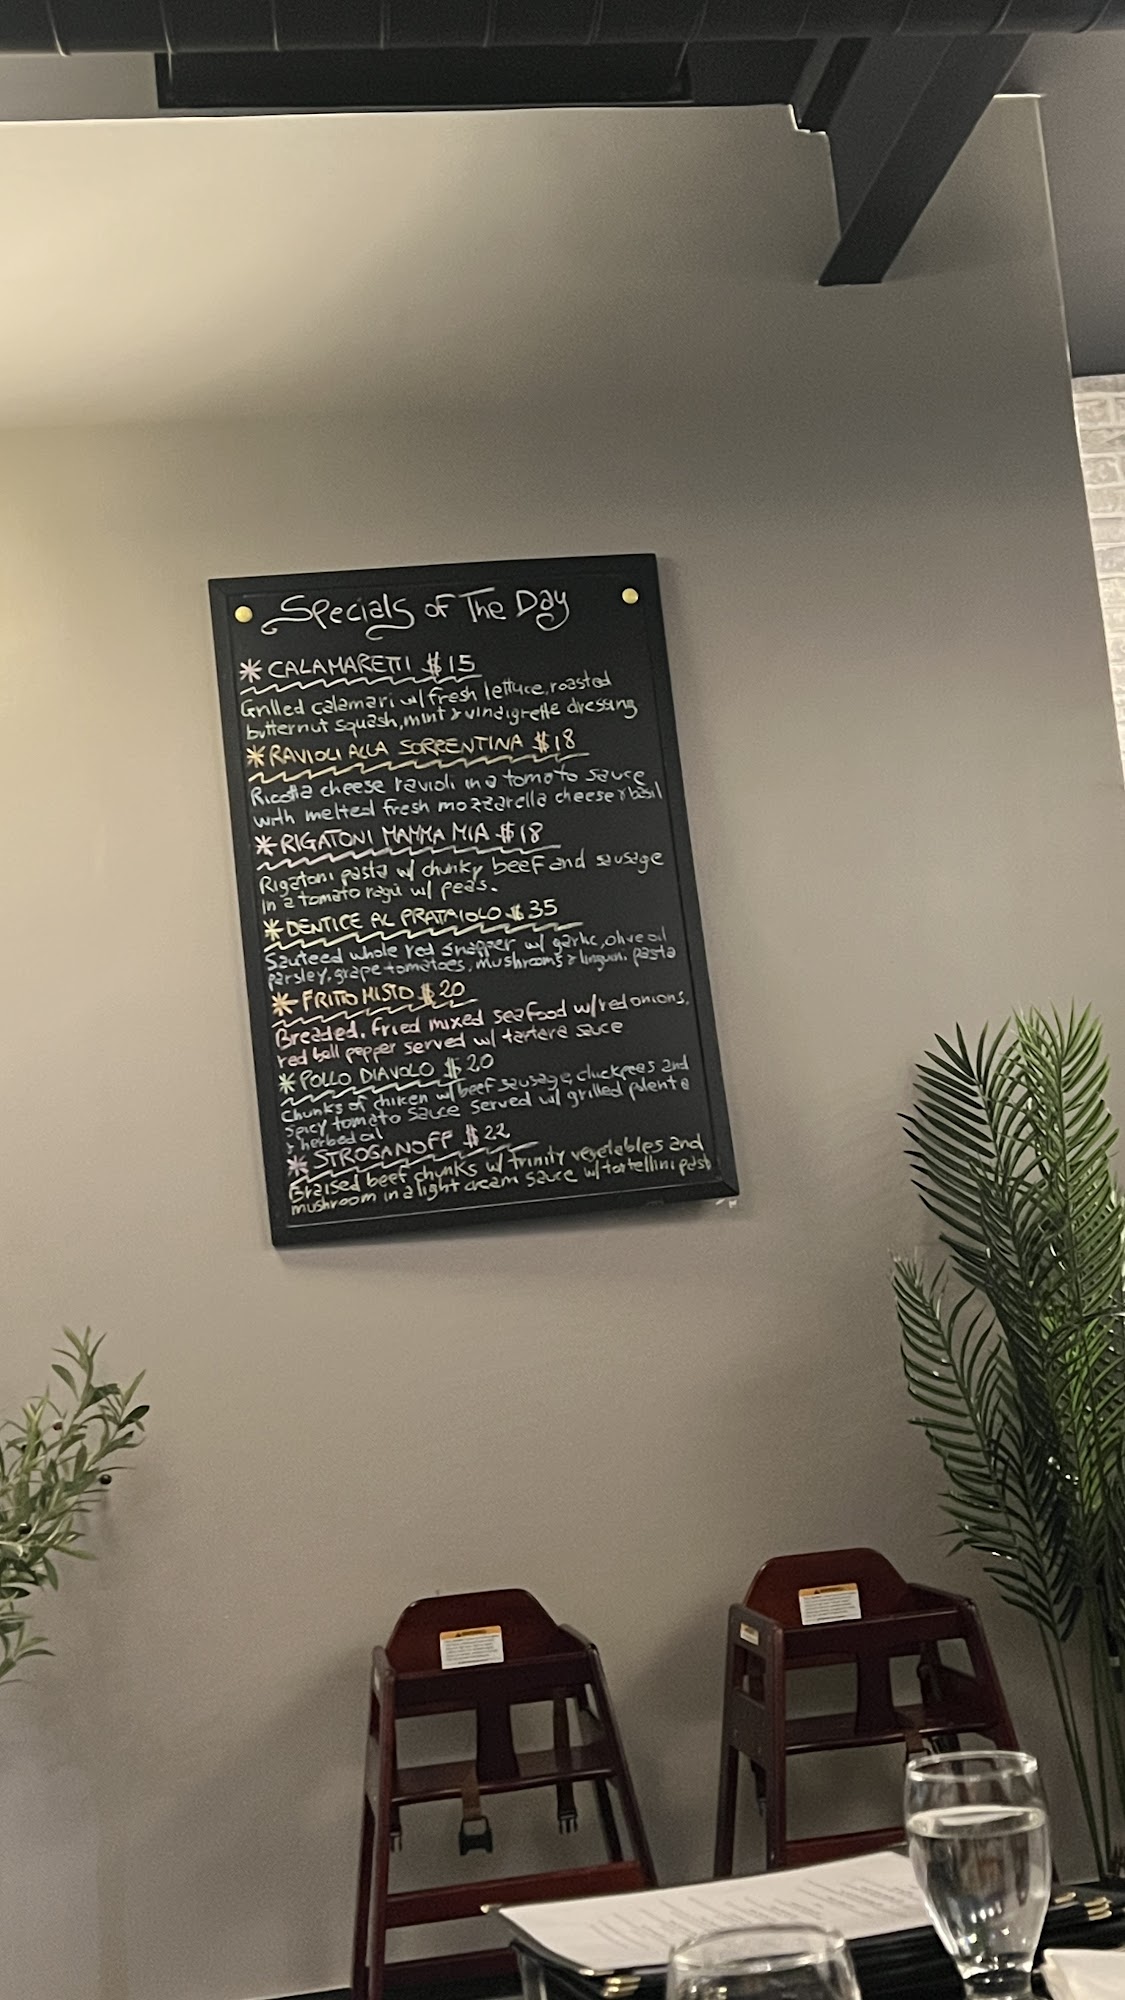 Specials of The Day
* CALAMARETTI $15
Grilled calamari w/ fresh lettuce, roasted
butternut squash, mint & vinaigrette dressing
* RAVIOLI ALLA SORRENTINA $18
Ricotta cheese ravioli in a tomato sauce
with melted fresh mozzarella cheese & basil
* RIGATONI MAMMA MIA $18
Rigatoni pasta w/ chunky beef and sausage
in a tomato ragu w/ peas.
* DENTICE AL PRATAIOLO $35
Sauteed whole red snapper w/ garlic, olive oil
parsley, grape tomatoes, mushrooms & linguini pasta
* FRITO MISTO $20
Breaded, fried mixed seafood w/ red onions,
red bell pepper served w/ tartere sauce
* POLLO DIAVOLO $20
Chunks of chiken w/ beef sausage, chickpeas and
spicy tomato sauce served w/ grilled polenta
& herbed oil
* STROGANOFF $22
Braised beef chunks w/ trinity vegetables and
mushroom in a light cream sauce w/ tortellini past